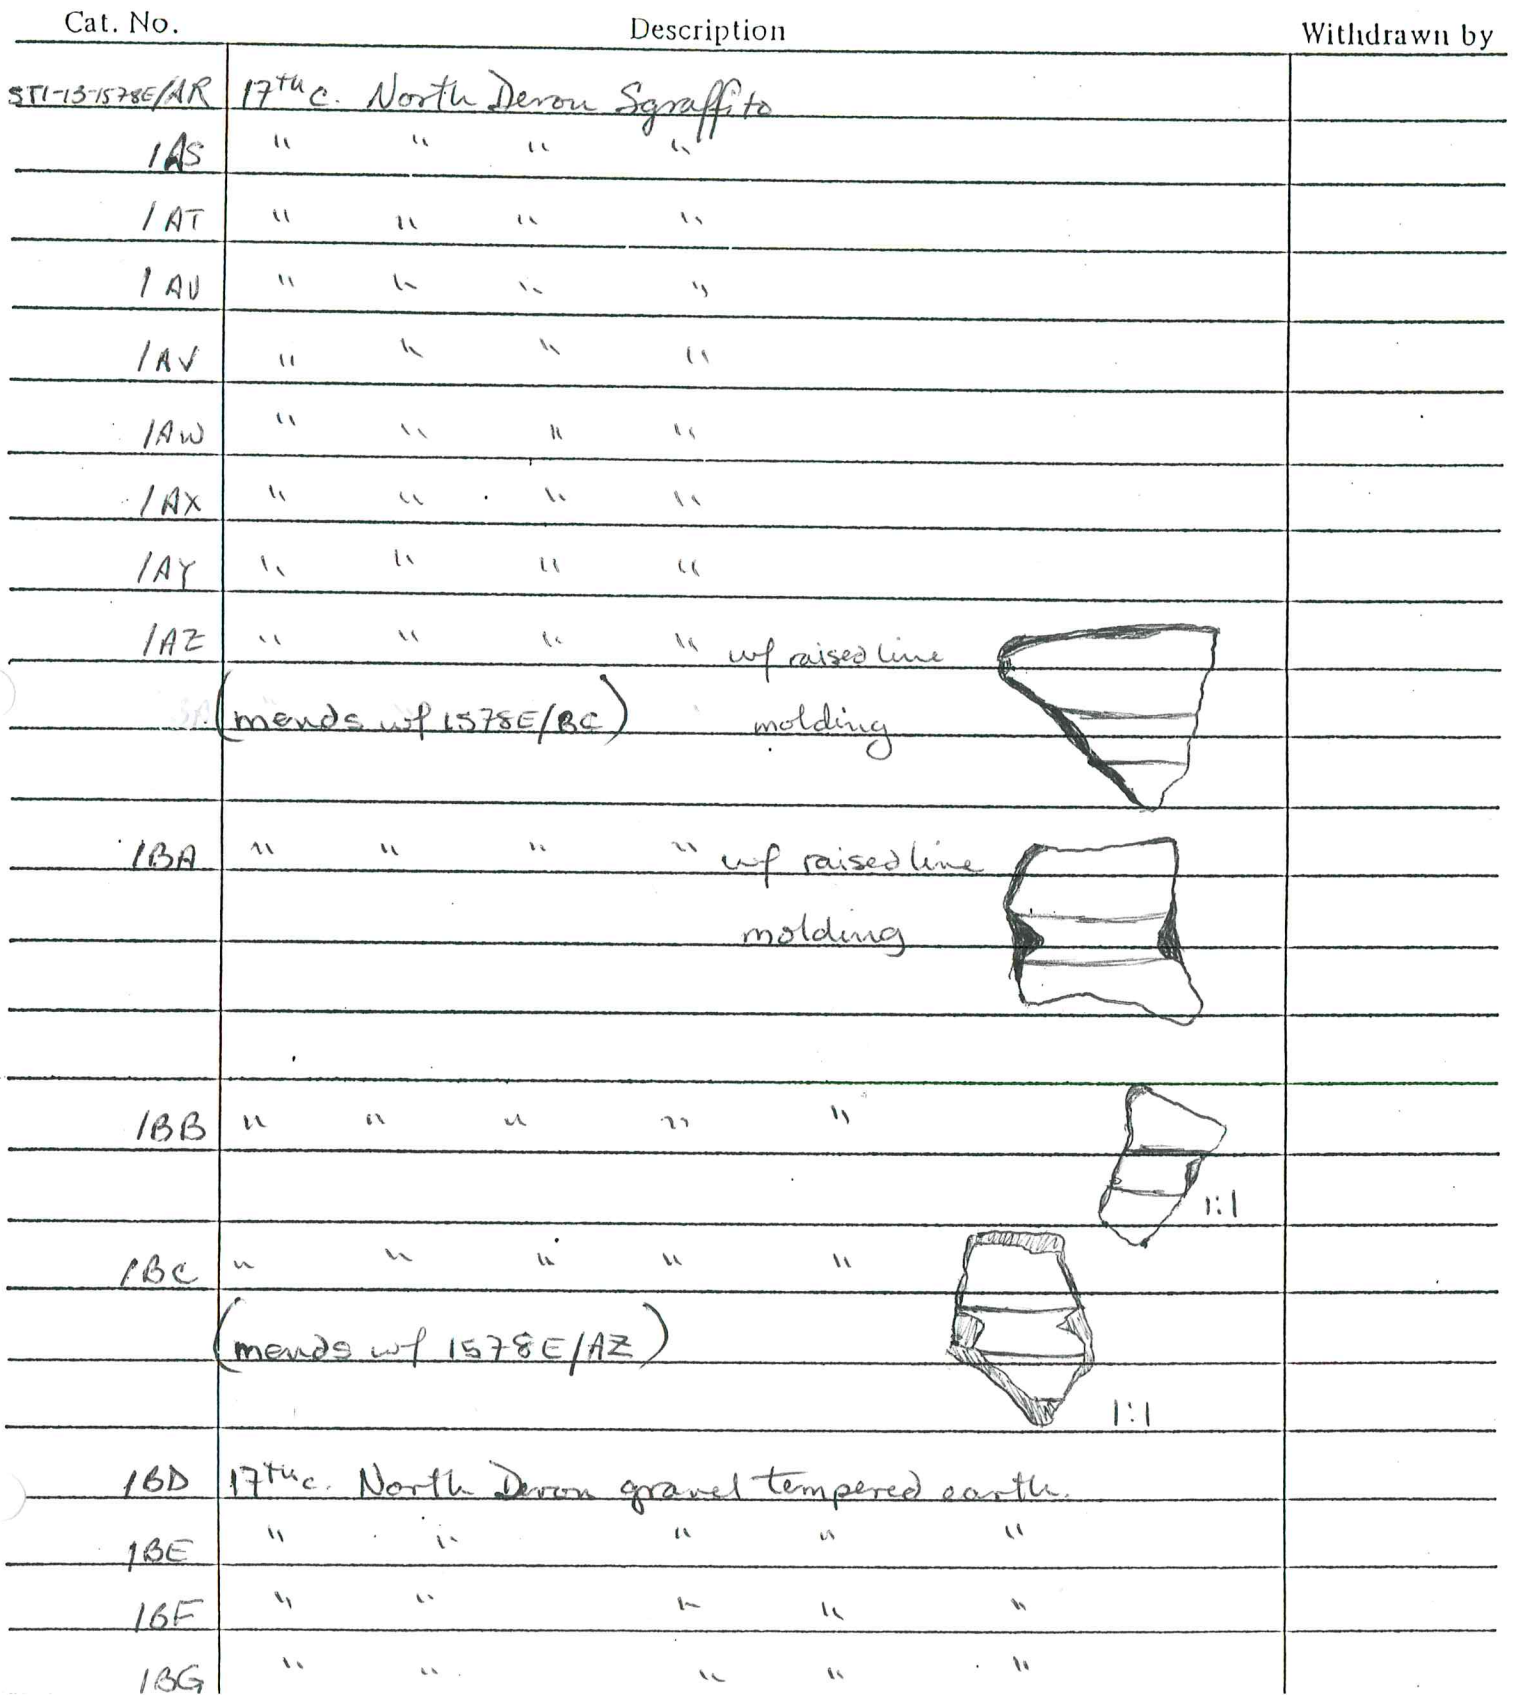 Cat. No. Description Withdrawn by
ST1-13-1578E/AR 17th c. North Devon Sgraffito
/AS " " " "
/AT " " " "
/AU " " " "
/AV " " " "
/AW " " " "
/AX " " " "
/AY " " " "
/AZ " " " " w/ raised line
(mends w/ 1578E/BC) molding
/BA " " " " w/ raised line
molding
/BB " " " " "
1:1
/BC " " " " "
(mends w/ 1578E/AZ)
1:1
/BD 17th c. North Devon gravel tempered earth.
/BE " " " " "
/BF " " " " "
/BG " " " " "